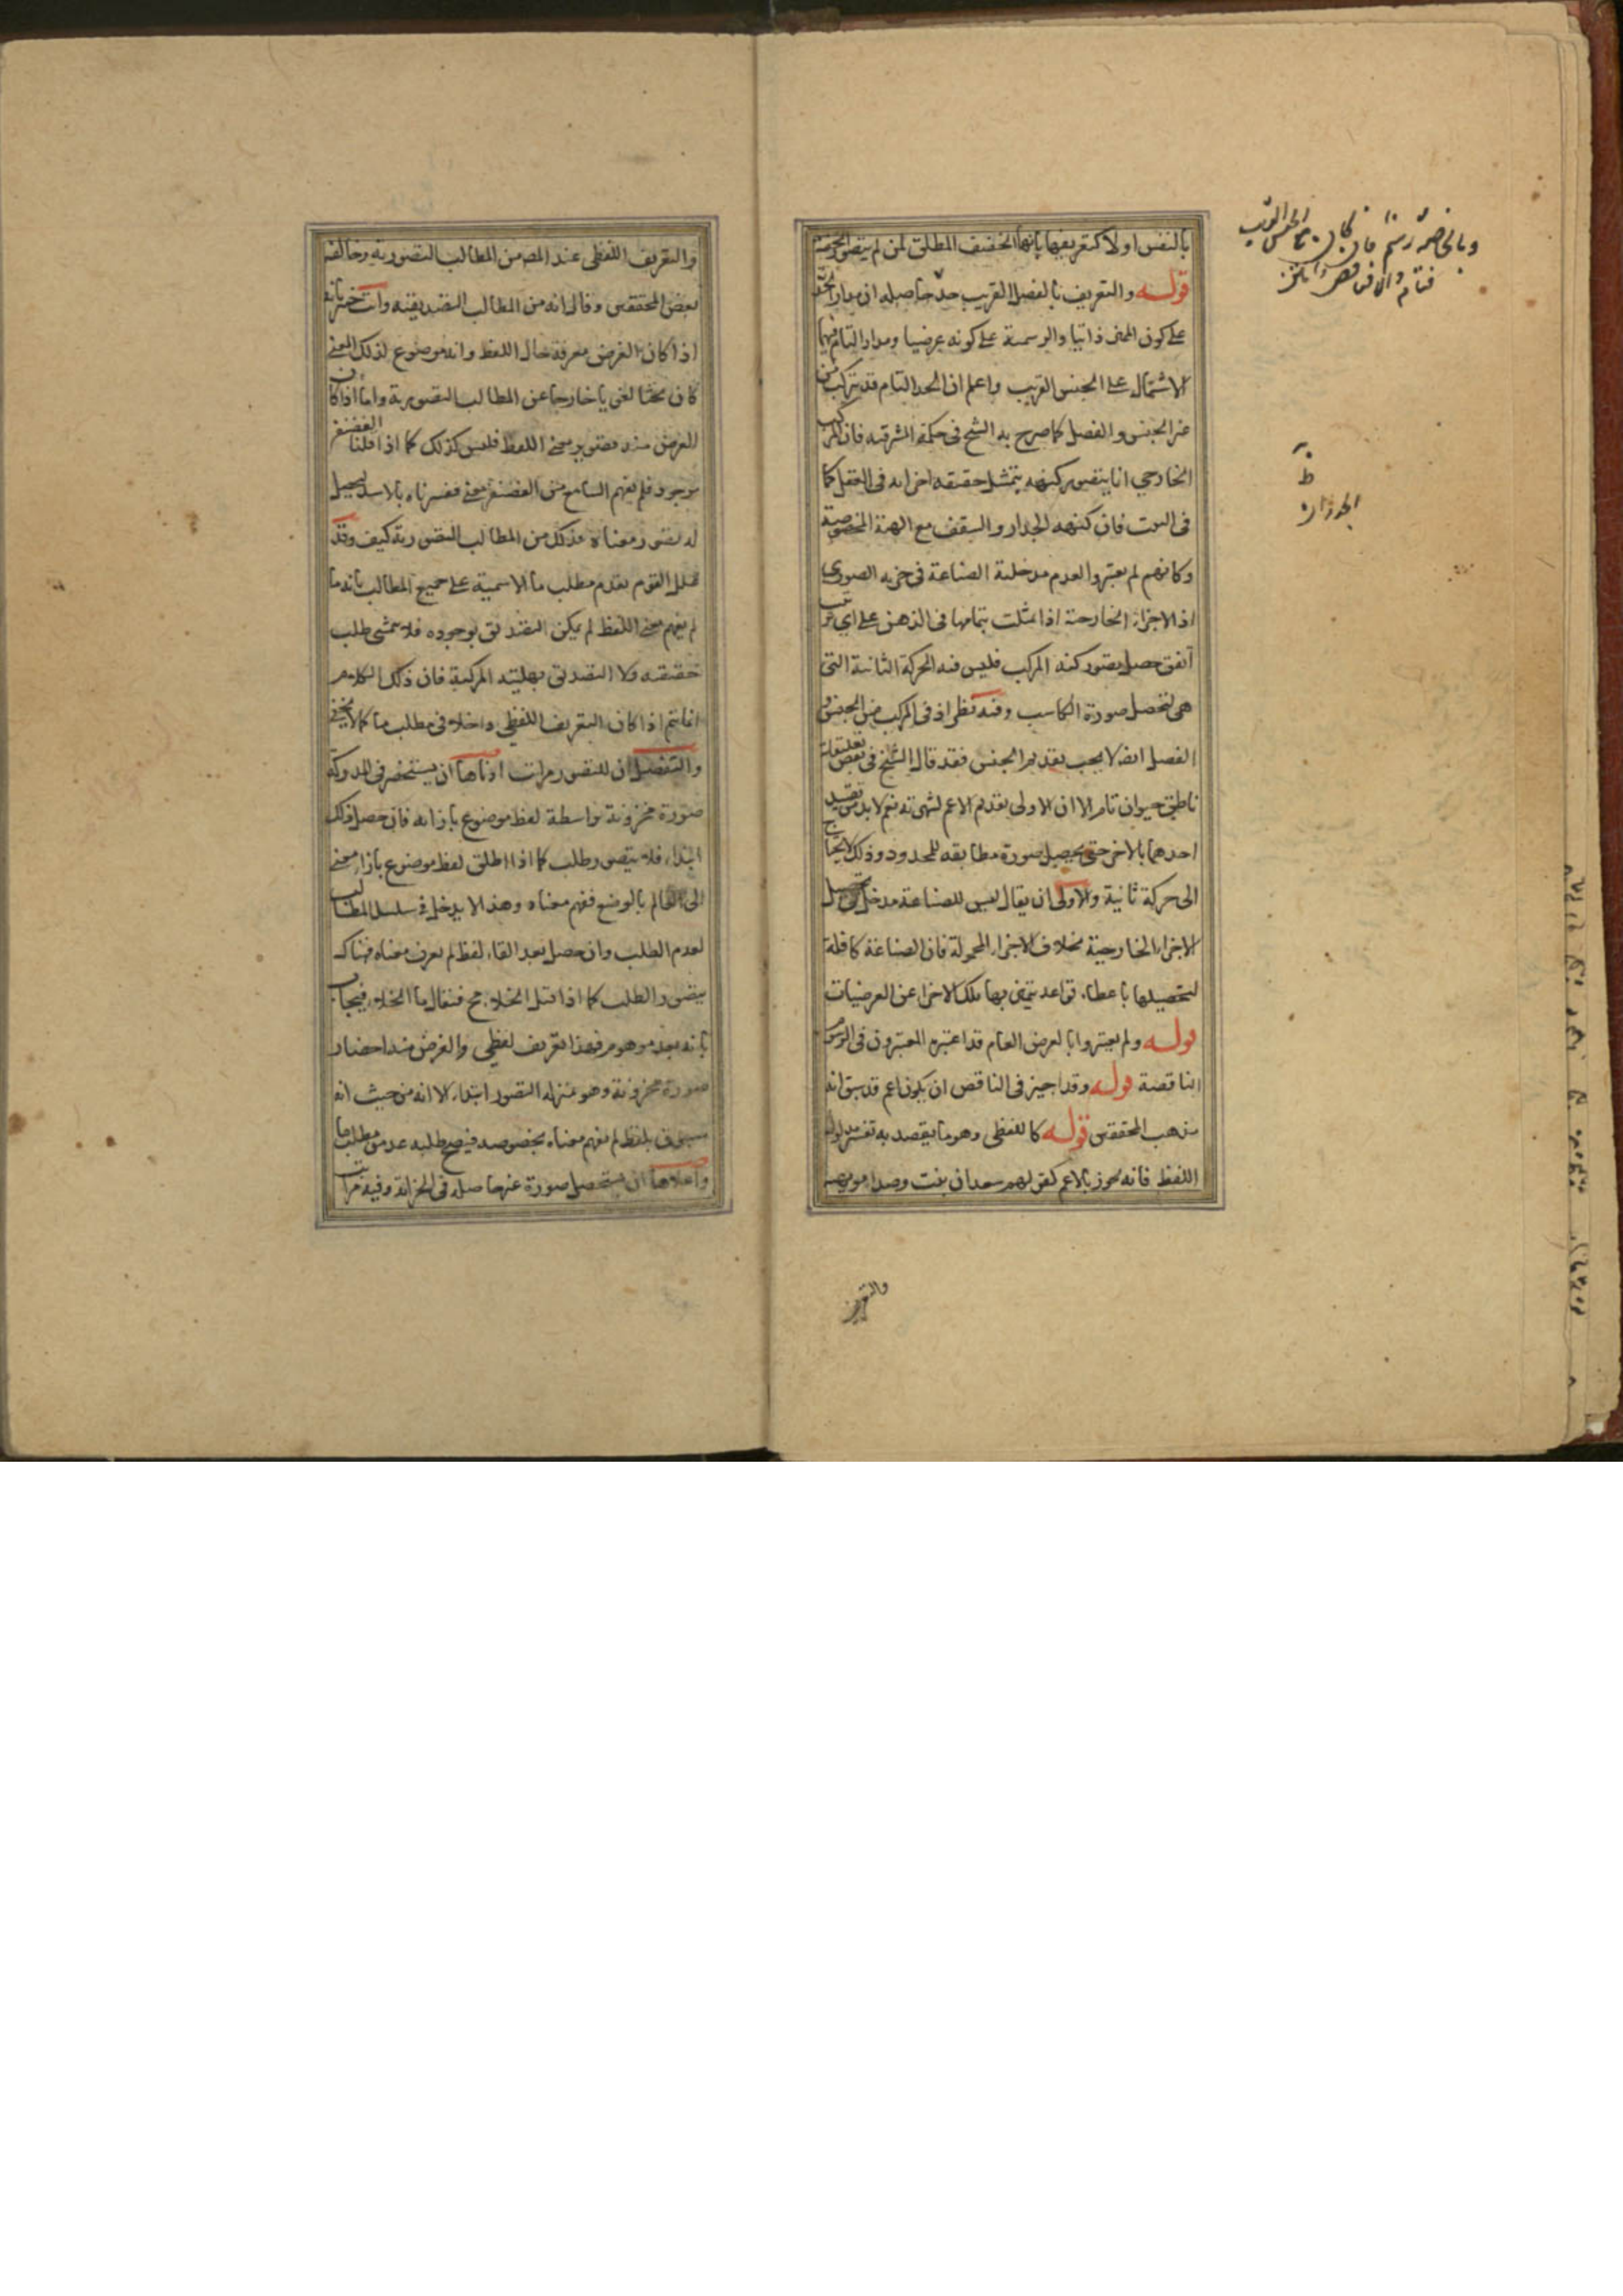 بالنفس او لا كتعريفها بانها الخفيف المطلق لمن لم يتصور
قوله والتعريف بالفصل القريب حد حاصله ان مدار الحدية
على كون المميز ذاتيا والرسمية على كونه عرضيا ومدار التمام فيهما
الاشتمال على الجنس القريب واعلم ان الحد التام قد يتركب من
غير الجنس والفصل كما صرح به الشيخ فى حكمة المشرقيه فان المركب
الخارجي انما يتصور كنهه بتمثل حقيقه اجزائه فى العقل كما
فى البيت فان كنهه الجدار والسقف مع الهيئة المخصوصة
وكانهم لم يعتبروا لعدم مدخلية الصناعة فى جزيه الصورى
اذ الاجزاء الخارجية اذا تمثلت بتمامها فى الذهن على اي ترتيب
اتفق حصل تصور كنه المركب فليس فيه الحركة الثانية التى
هى لتحصيل صورة الكاسب وفيه نظر اذ فى المركب من الجنس و
الفصل ايضا لا يجب تقديم الجنس فقد قال الشيخ فى بعض تعليقاته
ناطق حيوان تام الا ان الاولى تقديم الاعم لشهرته نعم لا بد من تقييد
احدهما بالاخر حتى يحصل صورة مطابقه للمحدود وذلك لا يحتاج
الى حركة ثانية والاولى ان يقال ليس للصناعة مدخل فى تحصيل
الاجزاء الخارجية بخلاف الاجزاء المحمولة فان الصناعة كافلة
لتحصيلها باعطاء قواعد يتميز بها تلك الاجزا عن العرضيات
قوله ولم يعتبروا بالعرض العام قد اعتبره المعتبرون فى الرسوم
الناقصة قوله وقد اجيز فى الناقص ان يكون اعم قد سبق انه
مذهب المحققين قوله كاللفظى وهو ما يقصد به تفسير مدلول
اللفظ فانه يجوز بالاعم كقولهم سعدان نبت وصداء
وبالخاصة رسم فان كان مع الجنس القريب
فتام والا فناقص
الجدران
والتعريف
والتعريف اللفظى عند المص من المطالب التصورية وخالفه
بعض المحققين وقال انه من المطالب التصديقيه وانت خبير بانه
اذا كان الغرض معرفة حال اللفظ وانه موضوع لذلك المعنى
كان بحثا لغويا خارجا عن المطالب التصويرية واما اذا كان
الغرض منه تصوير معنى اللفظ فليس كذلك كما اذا قلنا الغضنفر
موجود فلم يفهم السامع من الغضنفر معنى ففسرناه بالاسد ليحصل
له تصور معناه فذلك من المطالب التصورية كيف وقد
علل القوم تقدم مطلب ما الاسمية على جميع المطالب بانه ما
لم يفهم معنى اللفظ لم يكن التصديق بوجوده فلا يتمشى طلب
حقيقته ولا التصديق بهليته المركبة فان ذلك الكلام
انما يتم اذا كان التعريف اللفظي داخلا فى مطلب ما كما لا يخفى
والتفصيل ان للتصور مراتب ادناها ان يستحضر فى المدركة
صورة مخزونة بواسطة لفظ موضوع بازائه فان حصل ذلك
ابتداء فلا يتصور طلب كما اذا اطلق لفظ موضوع بازاء معنى
الى العالم بالوضع ففهم معناه وهذا لا يدخل فى سلسل المطالب
لعدم الطلب وان حصل بعد القاء لفظ لم يعرف معناه فهناك
يتصور الطلب كما اذا قيل الخلاء مح فيقال ما الخلاء فيجاب
بانه بعد موهوم فهذا تعريف لفظي والغرض منه احضار
صورة مخزونة وهو بمنزله التصور ابتداء الا انه من حيث انه
مسبوق بلفظ لم يفهم معناه بخصوصه فيصح طلبه عد من مطلب ما
واعلاها ان يستحصل صورة غير حاصله فى الخزانة وفيه مراتب